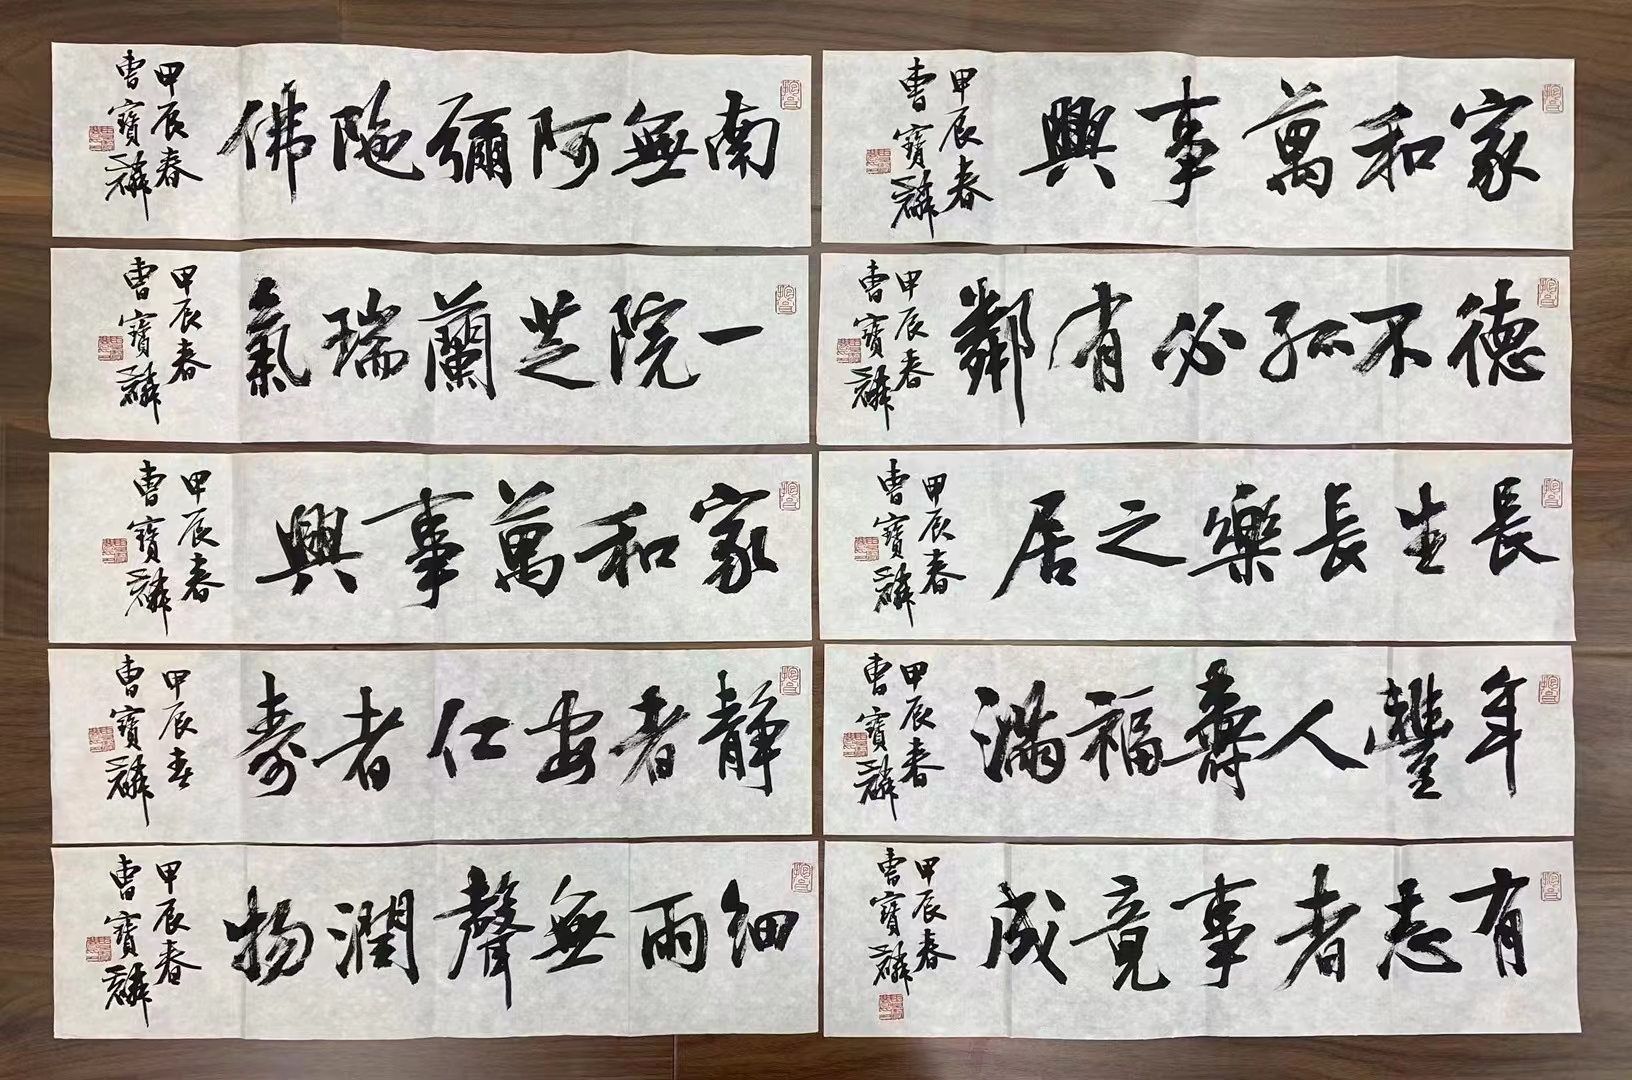 家和萬事興
甲辰春
曹寶麟
德不孤必有鄰
甲辰春
曹寶麟
長生長樂之居
甲辰春
曹寶麟
年豐人壽福滿
甲辰春
曹寶麟
有志者事竟成
甲辰春
曹寶麟
南無阿彌陀佛
甲辰春
曹寶麟
一院芝蘭瑞氣
甲辰春
曹寶麟
家和萬事興
甲辰春
曹寶麟
静者安仁者壽
甲辰春
曹寶麟
細雨無聲潤物
甲辰春
曹寶麟